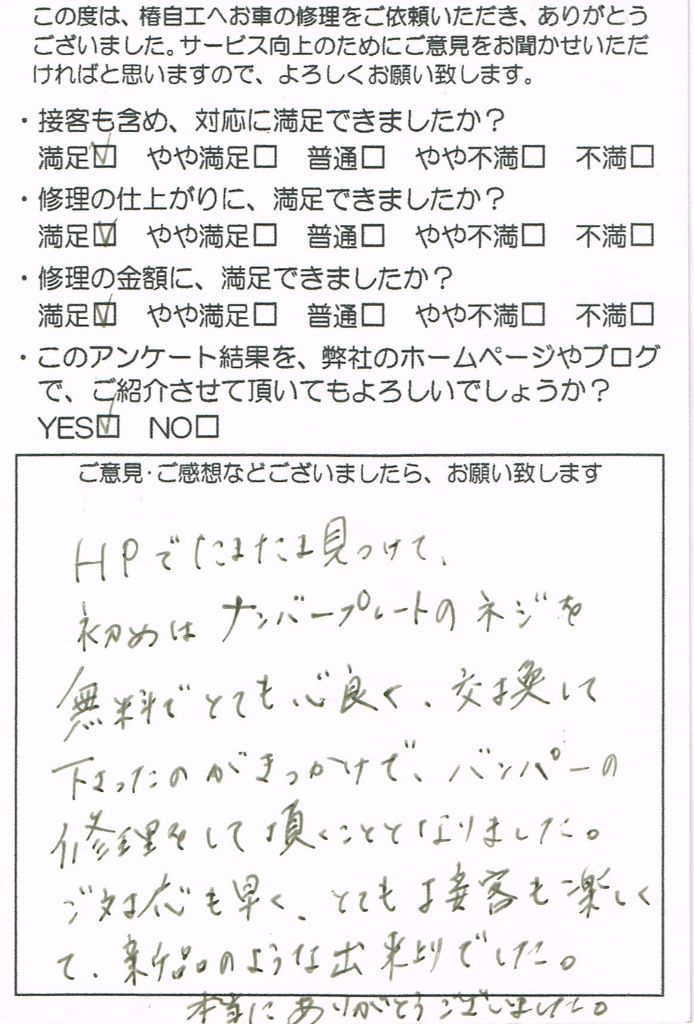 この度は、椿自工へお車の修理をご依頼いただき、ありがとう
ございました。サービス向上のためにご意見をお聞かせいただ
ければと思いますので、よろしくお願い致します。
・接客も含め、対応に満足できましたか？
満足☑ やや満足□ 普通□ やや不満□ 不満□
・修理の仕上がりに、満足できましたか？
満足☑ やや満足□ 普通□ やや不満□ 不満□
・修理の金額に、満足できましたか？
満足☑ やや満足□ 普通□ やや不満□ 不満□
・このアンケート結果を、弊社のホームページやブログ
で、ご紹介させて頂いてもよろしいでしょうか？
YES☑ NO□
ご意見・ご感想などございましたら、お願い致します
HPでたまたま見つけて、
初めは ナンバープレートのネジを
無料でとても心良く、交換して
下さったのがきっかけで、バンパーの
修理をして頂くこととなりました。
ご対応も早く、とても接客も楽しく
て、新品のような出来上りでした。
本当にありがとうございました。